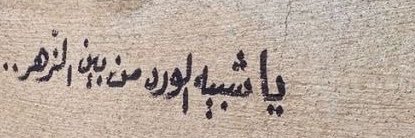 يا شبيه الورد من بين الزهر..